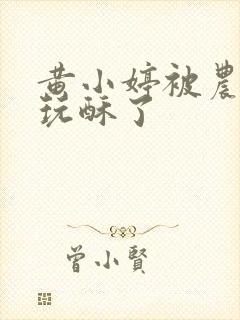 黄小婷被農
玩酥了
曾小賢